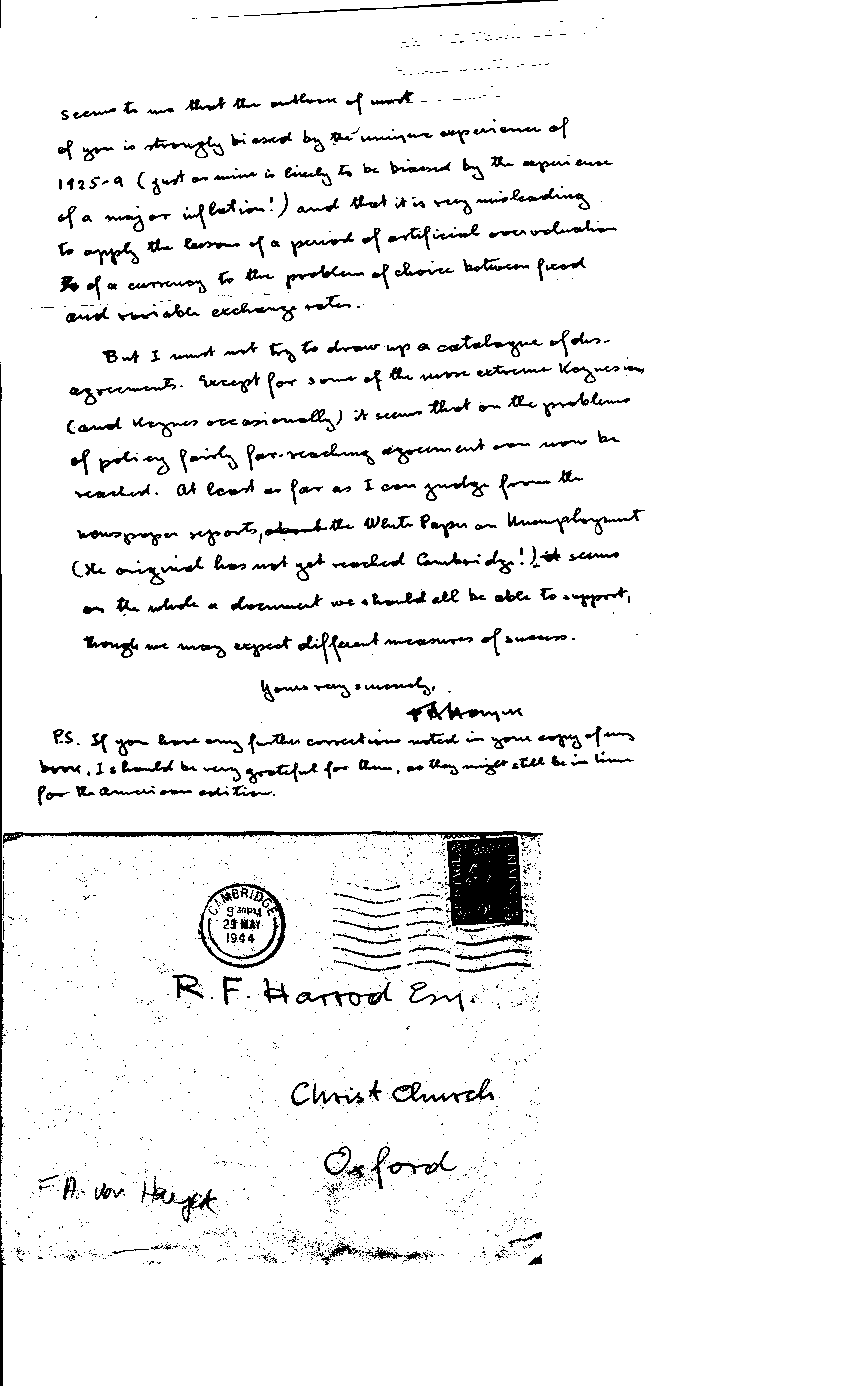 seems to me that the outlook of most
of you is strongly biased by the unique experience of
1925-9 (just as mine is likely to be biassed by the experience
of a major inflation!) and that it is very misleading
to apply the lessons of a period of artificial overvaluation
of a currency to the problem of choice between fixed
and variable exchange rates.
But I must not try to draw up a catalogue of dis-
agreements. Except for some of the more extreme Keynesians
(and Keynes occasionally) it seems that on the problems
of policy fairly far-reaching agreement can now be
reached. At least as far as I can judge from the
newspaper reports, about the White Paper on Unemployment
(the original has not yet reached Cambridge!) it seems
on the whole a document we should all be able to support,
though we may expect different measures of success.
Yours very sincerely,
F A Hayek
P.S. If you have any further corrections noted in your copy of my
book, I should be very grateful for them, as they might still be in time
for the American edition.
CAMBRIDGE
9 30PM
29 MAY
1944
R. F. Harrod Esq.
Christ Church
Oxford
F A. von Hayek